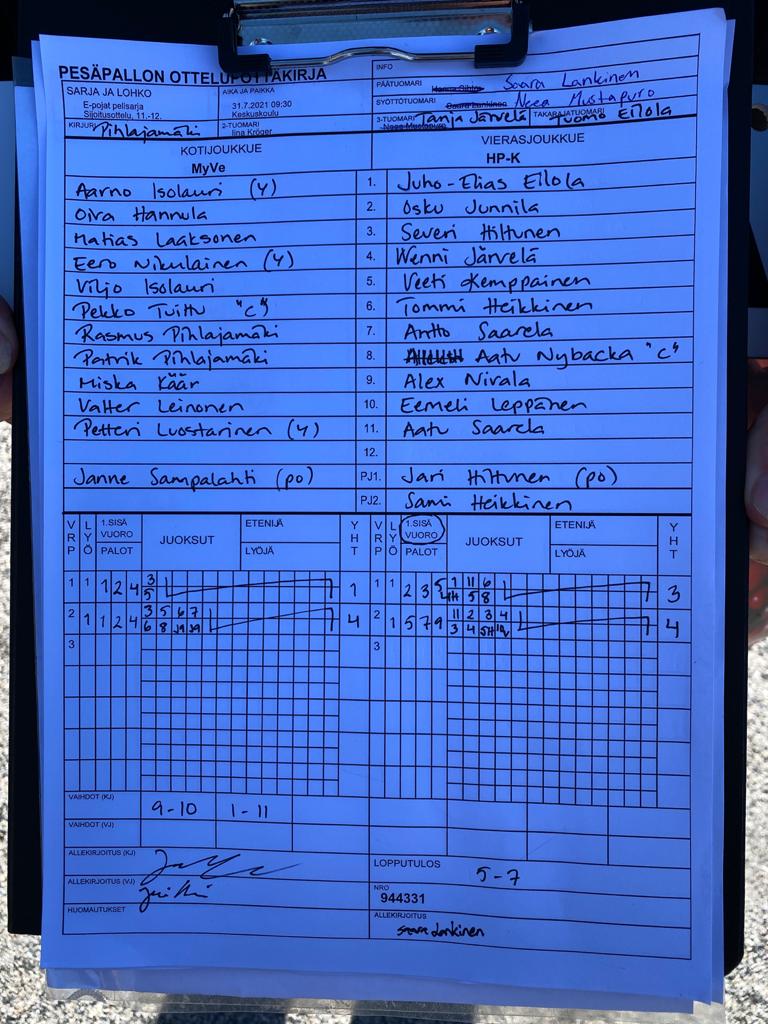 PESÄPALLON OTTELUPÖYTÄKIRJA
INFO
SARJA JA LOHKO
AIKA JA PAIKKA
PÄÄTUOMARI Saara Lankinen
E-pojat pelisarja
Sijoitusottelu, 11.-12.
31.7.2021 09:30
Keskuskoulu
SYÖTTÖTUOMARI Saara Lankinen Neea Mustapuro
KIRJURI Pihlajamäki
2-TUOMARI
Iina Kröger
3-TUOMARI Neea Mustapuro Tanja Järvelä
TAKARAJATUOMARI Tuomo Eilola
KOTIJOUKKUE
VIERASJOUKKUE
MyVe
HP-K
Aarno Isolauri (y) 1. Juho-Elias Eilola
Oiva Hannula 2. Osku Junnila
Matias Laaksonen 3. Severi Hiltunen
Eero Nikulainen (y) 4. Wenni Järvelä
Viljo Isolauri 5. Veeti Kemppainen
Pekko Tuittu "C" 6. Tommi Heikkinen
Rasmus Pihlajamäki 7. Antto Saarela
Patrik Pihlajamäki 8. Aatu Nybacka "C"
Miska Käär 9. Alex Nirala
Valter Leinonen 10. Eemeli Leppänen
Petteri Luostarinen (y) 11. Aatu Saarela
12.
Janne Sampalahti (po) PJ1. Jari Hiltunen (po)
PJ2. Sami Heikkinen
VRP LYÖ 1.SISÄ VUORO JUOKSUT ETENIJÄ YHT VRP LYÖ 1.SISÄ VUORO JUOKSUT ETENIJÄ YHT
PALOT LYÖJÄ PALOT LYÖJÄ
1 1 1 2 4 3 1 1 1 2 3 5 1 11 6 3
5 1H 5 8
2 1 1 2 4 3 5 6 7 4 2 1 5 7 9 11 2 3 4 4
6 8 3 4 5H
3 3
VAIHDOT (KJ) 9-10 1-11
VAIHDOT (VJ)
ALLEKIRJOITUS (KJ)
LOPPUTULOS 5-7
ALLEKIRJOITUS (VJ)
NRO
944331
HUOMAUTUKSET
ALLEKIRJOITUS
Saara Lankinen